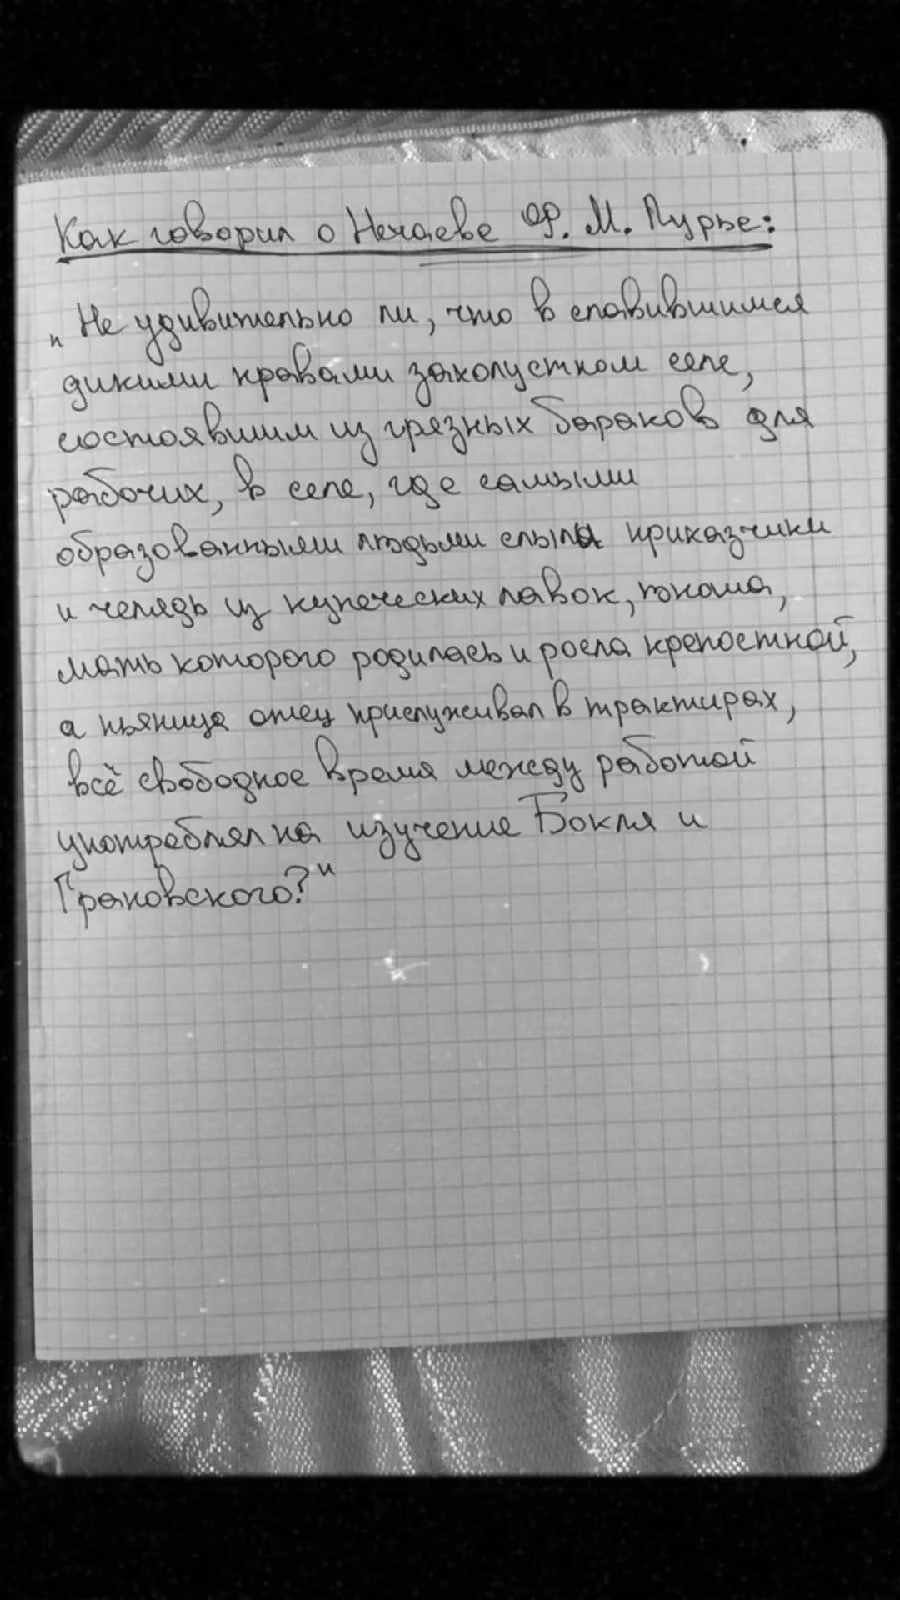 Как говорил о Нечаеве Ф. М. Лурье:
„Не удивительно ли, что в славившимся
дикими нравами захолустном селе,
состоявшим из грязных бараков для
рабочих, в селе, где самыми
образованными людьми слыли приказчики
и челядь из купеческих лавок, юноша,
мать которого родилась и росла крепостной,
а пьяница отец прислуживал в трактирах,
всё свободное время между работой
употреблял на изучение Бокля и
Грановского?"